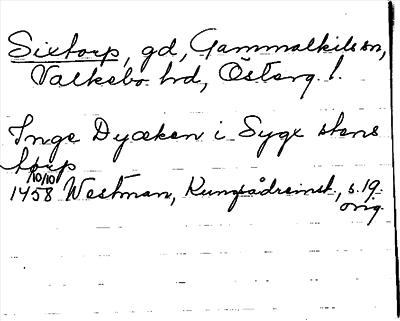 Sixtorp, gd, Gammalkils sn,
Valkebo hd, Österg. l.
Inge Dyæken i Sygx stens
torp
10/10
1458 Westman, Kungsådreinst., s. 19.
orig.